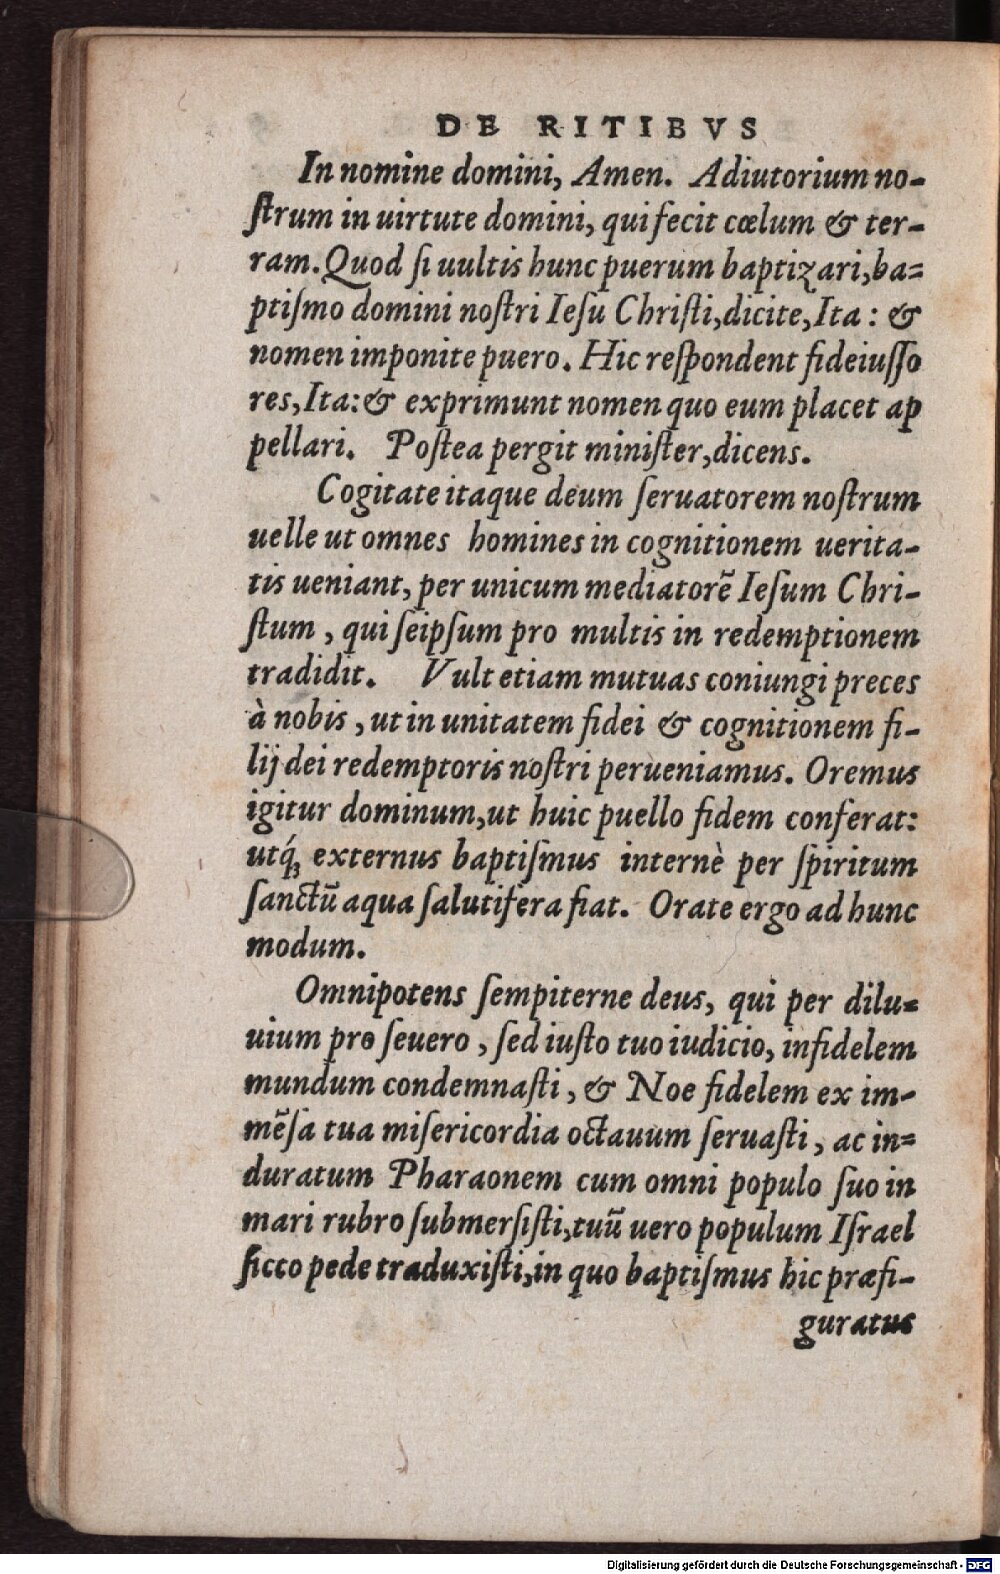 DE RITIBVS
In nomine domini, Amen. Adiutorium no-
ſtrum in uirtute domini, qui fecit cœlum & ter-
ram. Quod ſi uultis hunc puerum baptizari, ba-
ptiſmo domini noſtri Ieſu Chriſti, dicite, Ita: &
nomen imponite puero. Hic reſpondent fideiuſſo
res, Ita: & exprimunt nomen quo eum placet ap
pellari. Poſtea pergit miniſter, dicens.
Cogitate itaque deum ſeruatorem noſtrum
uelle ut omnes homines in cognitionem uerita-
tis ueniant, per unicum mediatorẽ Ieſum Chri-
ſtum, qui ſeipſum pro multis in redemptionem
tradidit. Vult etiam mutuas coniungi preces
à nobis, ut in unitatem fidei & cognitionem fi-
lij dei redemptoris noſtri perueniamus. Oremus
igitur dominum, ut huic puello fidem conferat:
utq́ꝫ externus baptiſmus internè per ſpiritum
ſanctũ aqua ſalutifera fiat. Orate ergo ad hunc
modum.
Omnipotens ſempiterne deus, qui per dilu-
uium pro ſeuero, ſed iuſto tuo iudicio, infidelem
mundum condemnaſti, & Noe fidelem ex im-
mẽſa tua miſericordia octauum ſeruaſti, ac in-
duratum Pharaonem cum omni populo ſuo in
mari rubro ſubmerſiſti, tuũ uero populum Iſrael
ſicco pede traduxiſti, in quo baptiſmus hic præfi-
guratus
Digitalisierung gefördert durch die Deutsche Forschungsgemeinschaft - DFG